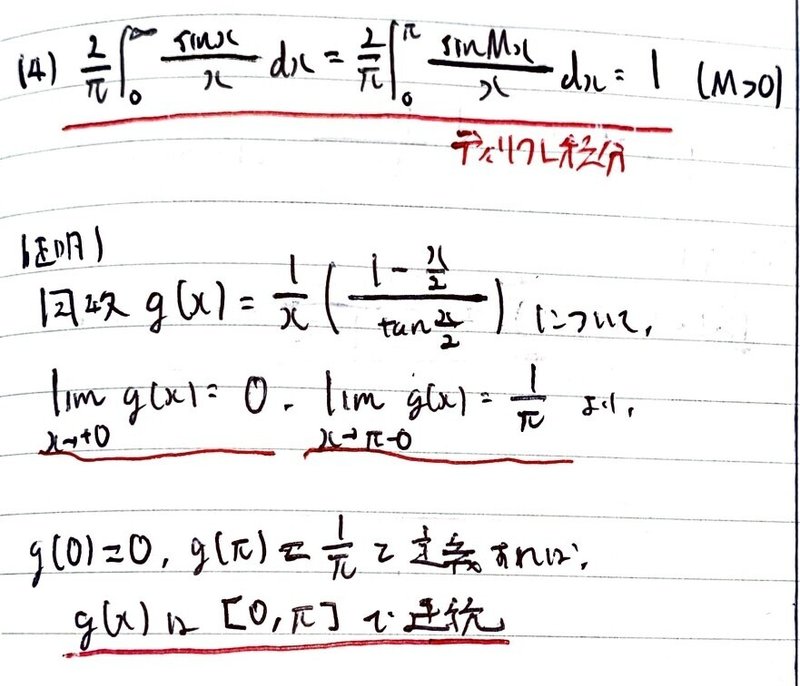 (4) 2/π ∫₀^∞ sinx/x dx = 2/π ∫₀^π sinMx/x dx = 1 (M>0)
ディリクレ積分
(証明)
関数 g(x) = 1/x ( (1 - x/2) / (tan x/2) ) について,
lim_{x→+0} g(x) = 0. lim_{x→π-0} g(x) = 1/π より,
g(0)=0, g(π)=1/π と すれば,
g(x) は [0,π] で連続